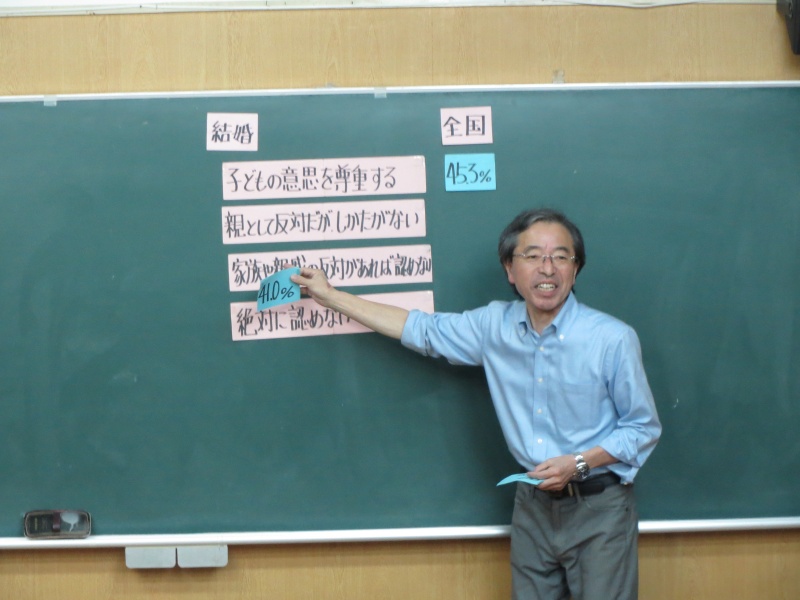 結婚
全国
子どもの意思を尊重する
45.3%
親として反対だが、しかたがない
家族や親戚の反対があれば認めない
41.0%
絶対に認めない